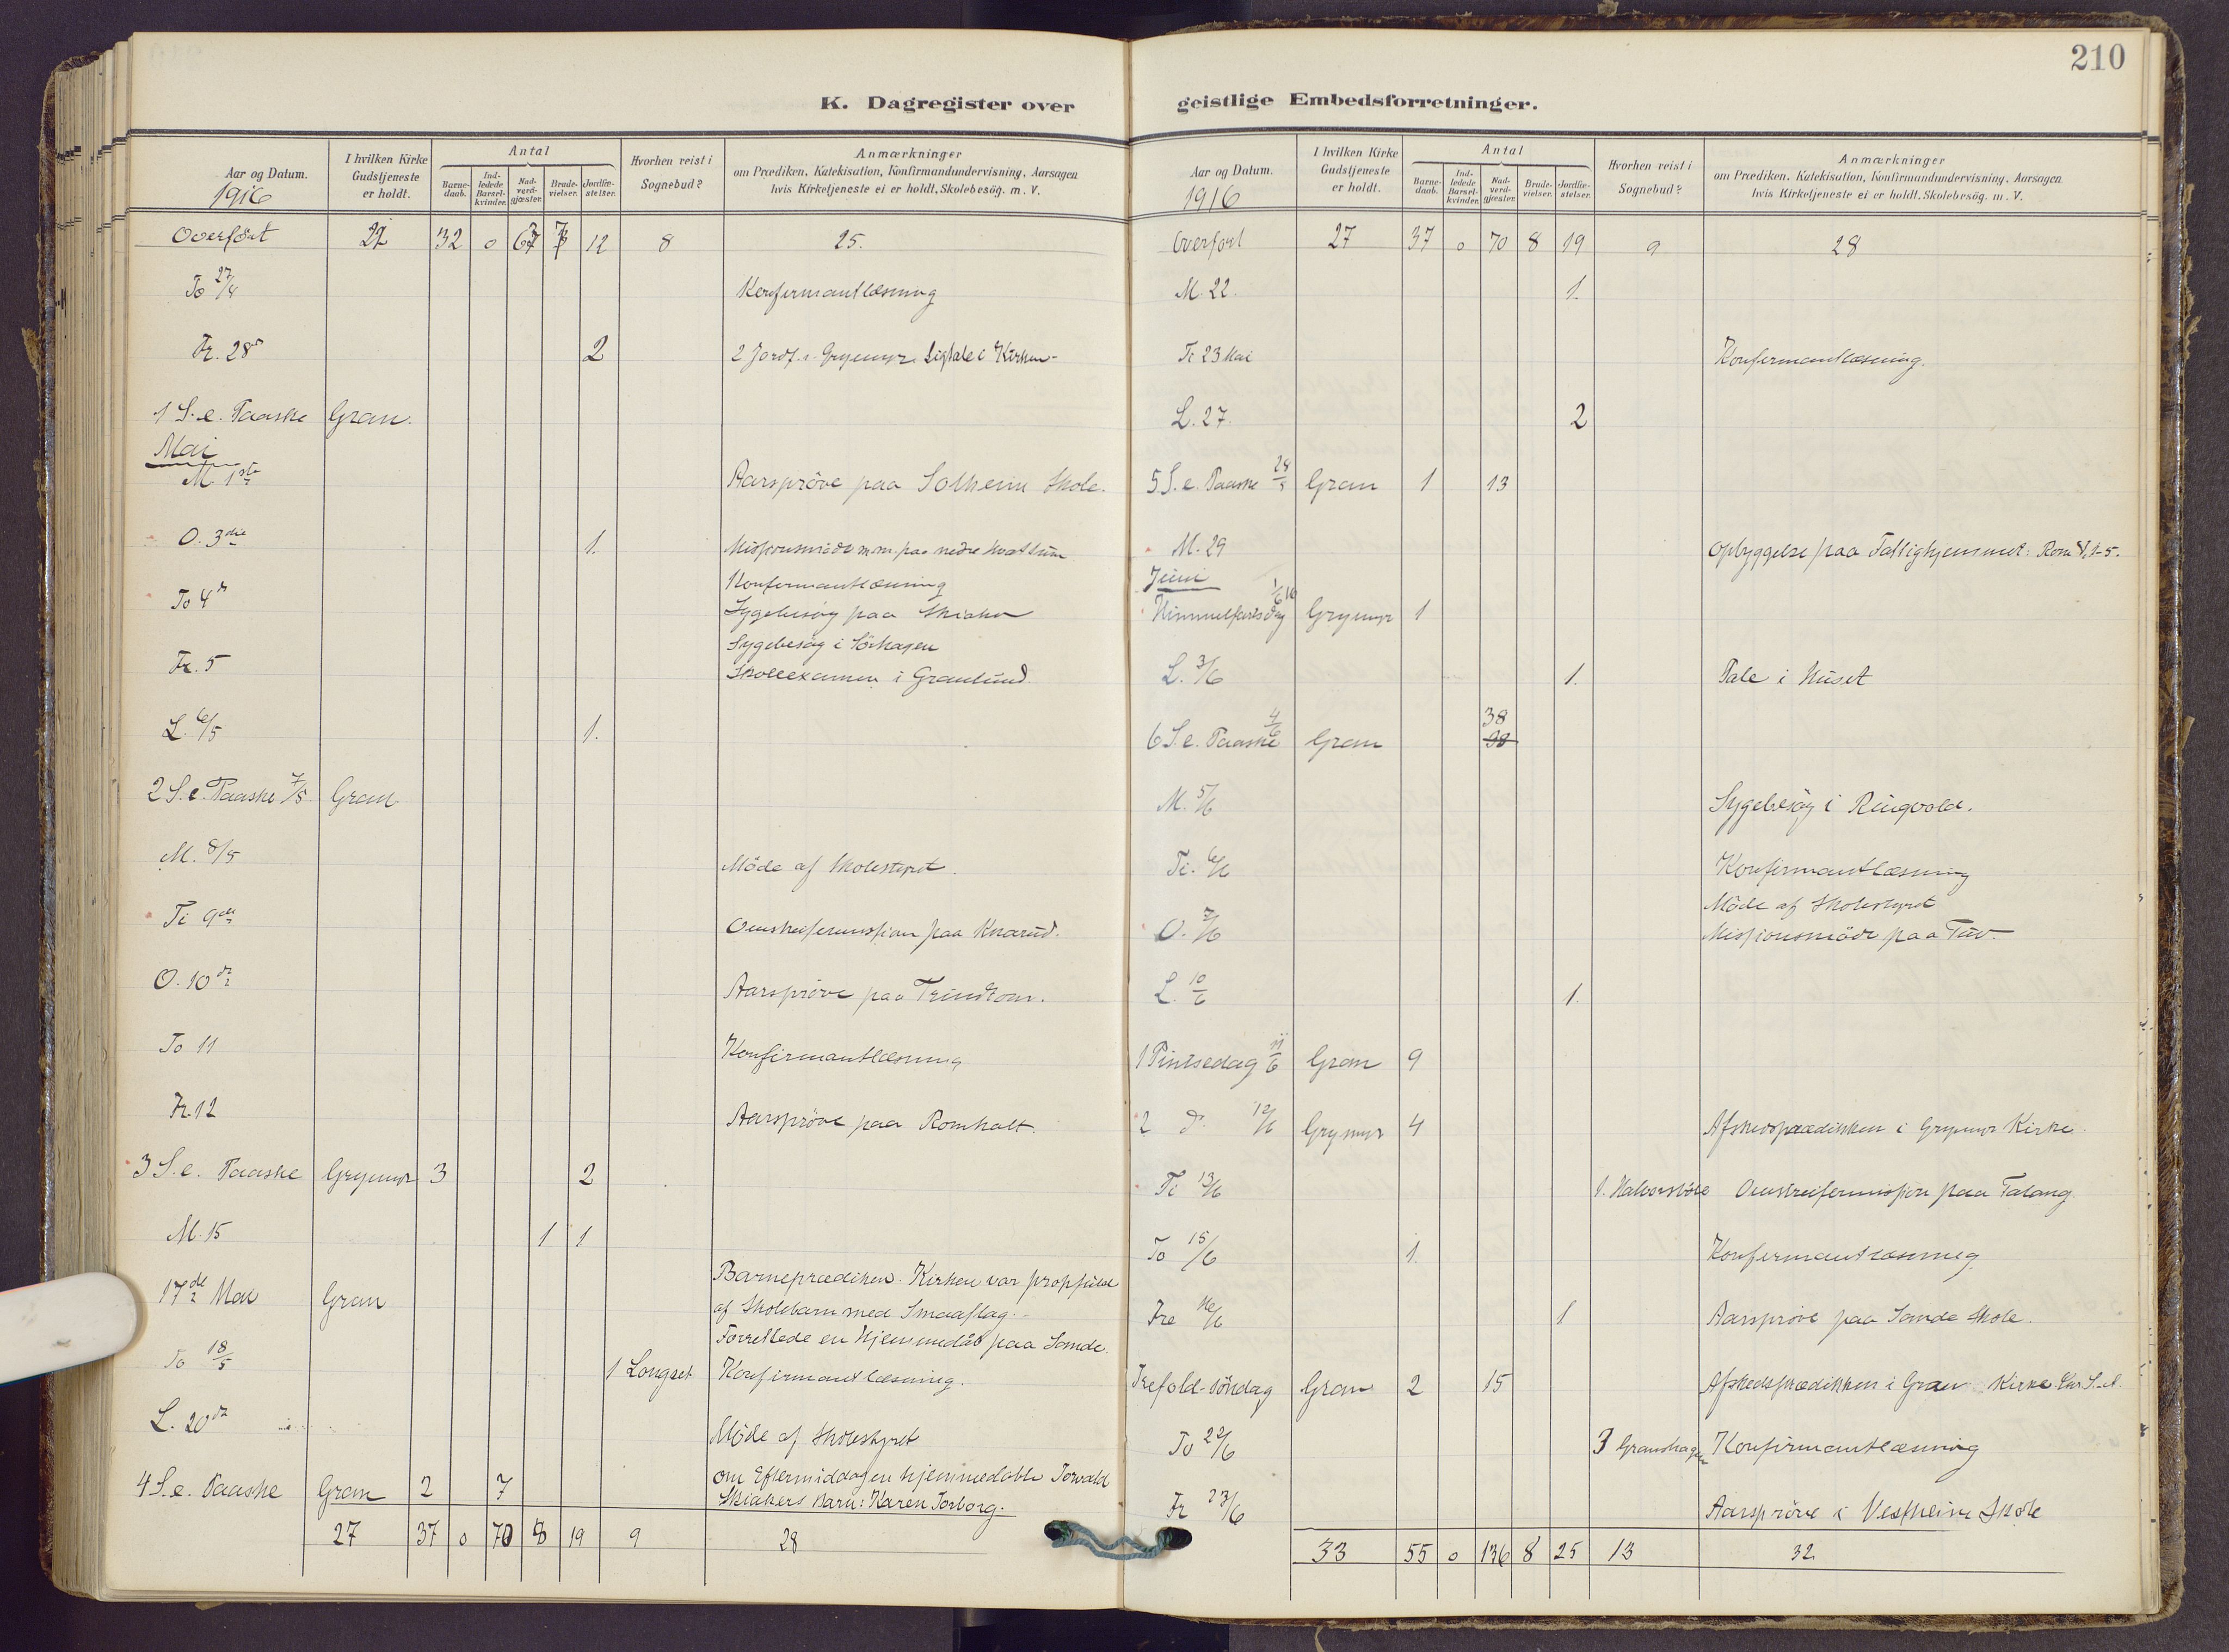 210
K. Dagregister over geistlige Embedsforretninger.
Aar og Datum.
1916
I hvilken Kirke Gudstjeneste er holdt.
Antal
Barnedaab.
Indledede Barselkvinder.
Nadverdgjæster.
Brudevielser.
Jordfæstelser.
Hvorhen reist i Sognebud?
Anmærkninger
om Prædiken, Katekisation, Konfirmandundervisning, Aarsagen
hvis Kirketjeneste ei er holdt, Skolebesög. m. V.
Overført 32 0 12 8 25.
To 27/4 Konfirmantlæsning
Fr. 28 2 2 Jordf. i Grymyr. Ligtale i Kirken
1 S. e. Paaske Gran.
Mai
M. 1ste Aarsprøve paa Solheim Skole.
O. 3die 1. Missionsmøde m.m. paa nedre Hvattum
Konfirmantlæsning
To 4 Sygebesøg paa Skiaker
Sygebesøg i Sörhagen
Fr. 5 Skoleexamen i Granlund
L. 6/5 1.
2 S. e. Paaske 7/5 Gran
M. 8/5 Møde af Skolestyret.
Ti 9 Omstreifermission paa Knarud.
O. 10 Aarsprøve paa
To 11 Konfirmantlæsning
Fr. 12 Aarsprøve paa
3 S. e. Paaske Grymyr 3 2
M. 15 1 1
17de Mai Gran Barneprædiken. Kirken var propfuld
af Skolebarn med Smaaflag.
Forrettede en Hjemmedåb paa Sande.
To 18/5 1 Longset Konfirmantlæsning.
L. 20 Møde af Skolestyret
om Eftermiddagen hjemmedøbte Torvald
4 S. e. Paaske Gran 2 7 Skiakers Barn: Karen Torborg.
27 37 0 70 8 19 9 28
Aar og Datum.
1916
I hvilken Kirke Gudstjeneste er holdt.
Antal
Barnedaab.
Indledede Barselkvinder.
Nadverdgjæster.
Brudevielser.
Jordfæstelser.
Hvorhen reist i Sognebud?
Anmærkninger
om Prædiken, Katekisation, Konfirmandundervisning, Aarsagen
hvis Kirketjeneste ei er holdt, Skolebesög. m. V.
Overført 27 37 0 70 8 19 9 28
M. 22. 1.
Ti 23 Mai Konfirmantlæsning.
L. 27. 2
5 S. e. Paaske 28/5 Gran 1 13
M. 29 Opbyggelse paa Fattighjemmet: Rom 1-5.
Juni
Himmelfartsdag 1/6 16 Grymyr 1
L. 3/6 1. Tale i Huset
38
6 S. e. Paaske 4/6 Gran
M. 5/6 Sygebesøg i Ringvold.
Ti. 6/6 Konfirmantlæsning
Møde af Skolestyret
O. 7/6 Missionsmøde paa
L. 10/6 1.
1 Pintsedag 11/6 Gran 9
2 d. 12/6 Grymyr 4 Afskedsprædikken i Grymyr Kirke.
Ti 13/6 1. Omstreifermission paa
To 15/6 1. Konfirmantlæsning
Fre 16/6 1 Aarsprøve paa Sande Skole.
Trefold-söndag Gran 2 15 Afskedsprædikken i Gran Kirke.
To 22/6 3 Granshagen Konfirmantlæsning
Fr 23/6 Aarsprøve i Vestheim Skole
33 55 0 136 8 25 13 32